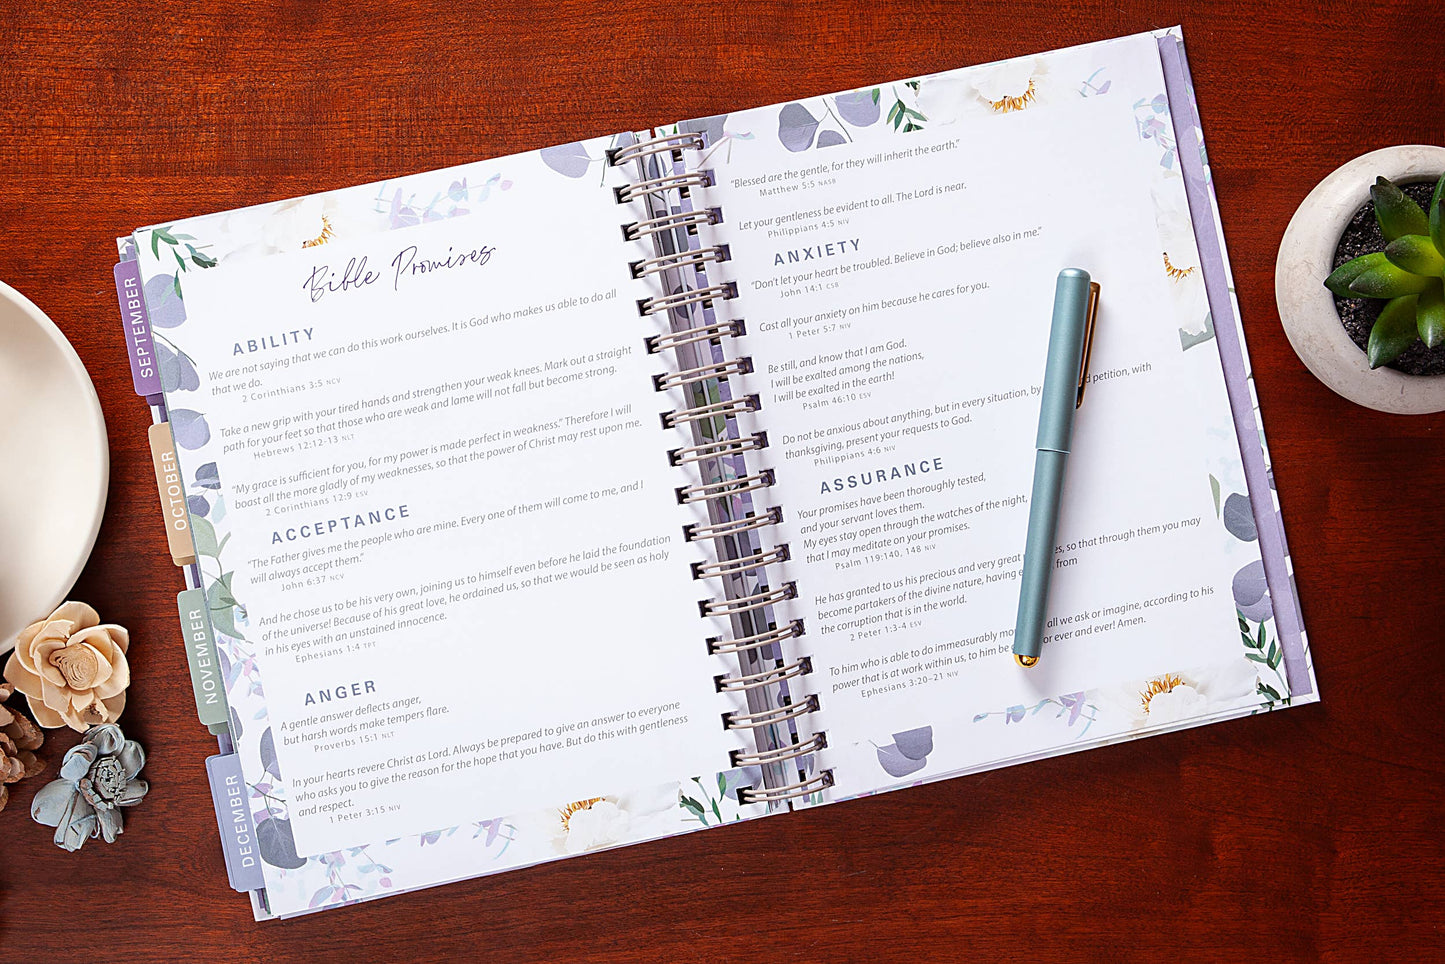 SEPTEMBER
OCTOBER
NOVEMBER
DECEMBER
Bible Promises
ABILITY
We are not saying that we can do this work ourselves. It is God who makes us able to do all
that we do.
2 Corinthians 3:5 NCV
Take a new grip with your tired hands and strengthen your weak knees. Mark out a straight
path for your feet so that those who are weak and lame will not fall but become strong.
Hebrews 12:12-13 NLT
“My grace is sufficient for you, for my power is made perfect in weakness.” Therefore I will
boast all the more gladly of my weaknesses, so that the power of Christ may rest upon me.
2 Corinthians 12:9 ESV
ACCEPTANCE
“The Father gives me the people who are mine. Every one of them will come to me, and I
will always accept them.”
John 6:37 NCV
And he chose us to be his very own, joining us to himself even before he laid the foundation
of the universe! Because of his great love, he ordained us, so that we would be seen as holy
in his eyes with an unstained innocence.
Ephesians 1:4 TPT
ANGER
A gentle answer deflects anger,
but harsh words make tempers flare.
Proverbs 15:1 NLT
In your hearts revere Christ as Lord. Always be prepared to give an answer to everyone
who asks you to give the reason for the hope that you have. But do this with gentleness
and respect.
1 Peter 3:15 NIV
“Blessed are the gentle, for they will inherit the earth.”
Matthew 5:5 NASB
Let your gentleness be evident to all. The Lord is near.
Philippians 4:5 NIV
ANXIETY
“Don't let your heart be troubled. Believe in God; believe also in me.”
John 14:1 CSB
Cast all your anxiety on him because he cares for you.
1 Peter 5:7 NIV
Be still, and know that I am God.
I will be exalted among the nations,
I will be exalted in the earth!
Psalm 46:10 ESV
Do not be anxious about anything, but in every situation, by d petition, with
thanksgiving, present your requests to God.
Philippians 4:6 NIV
ASSURANCE
Your promises have been thoroughly tested,
and your servant loves them.
My eyes stay open through the watches of the night,
that I may meditate on your promises.
Psalm 119:140, 148 NIV
He has granted to us his precious and very great es, so that through them you may
become partakers of the divine nature, having e from
the corruption that is in the world.
2 Peter 1:3-4 ESV
To him who is able to do immeasurably mo all we ask or imagine, according to his
power that is at work within us, to him be or ever and ever! Amen.
Ephesians 3:20-21 NIV